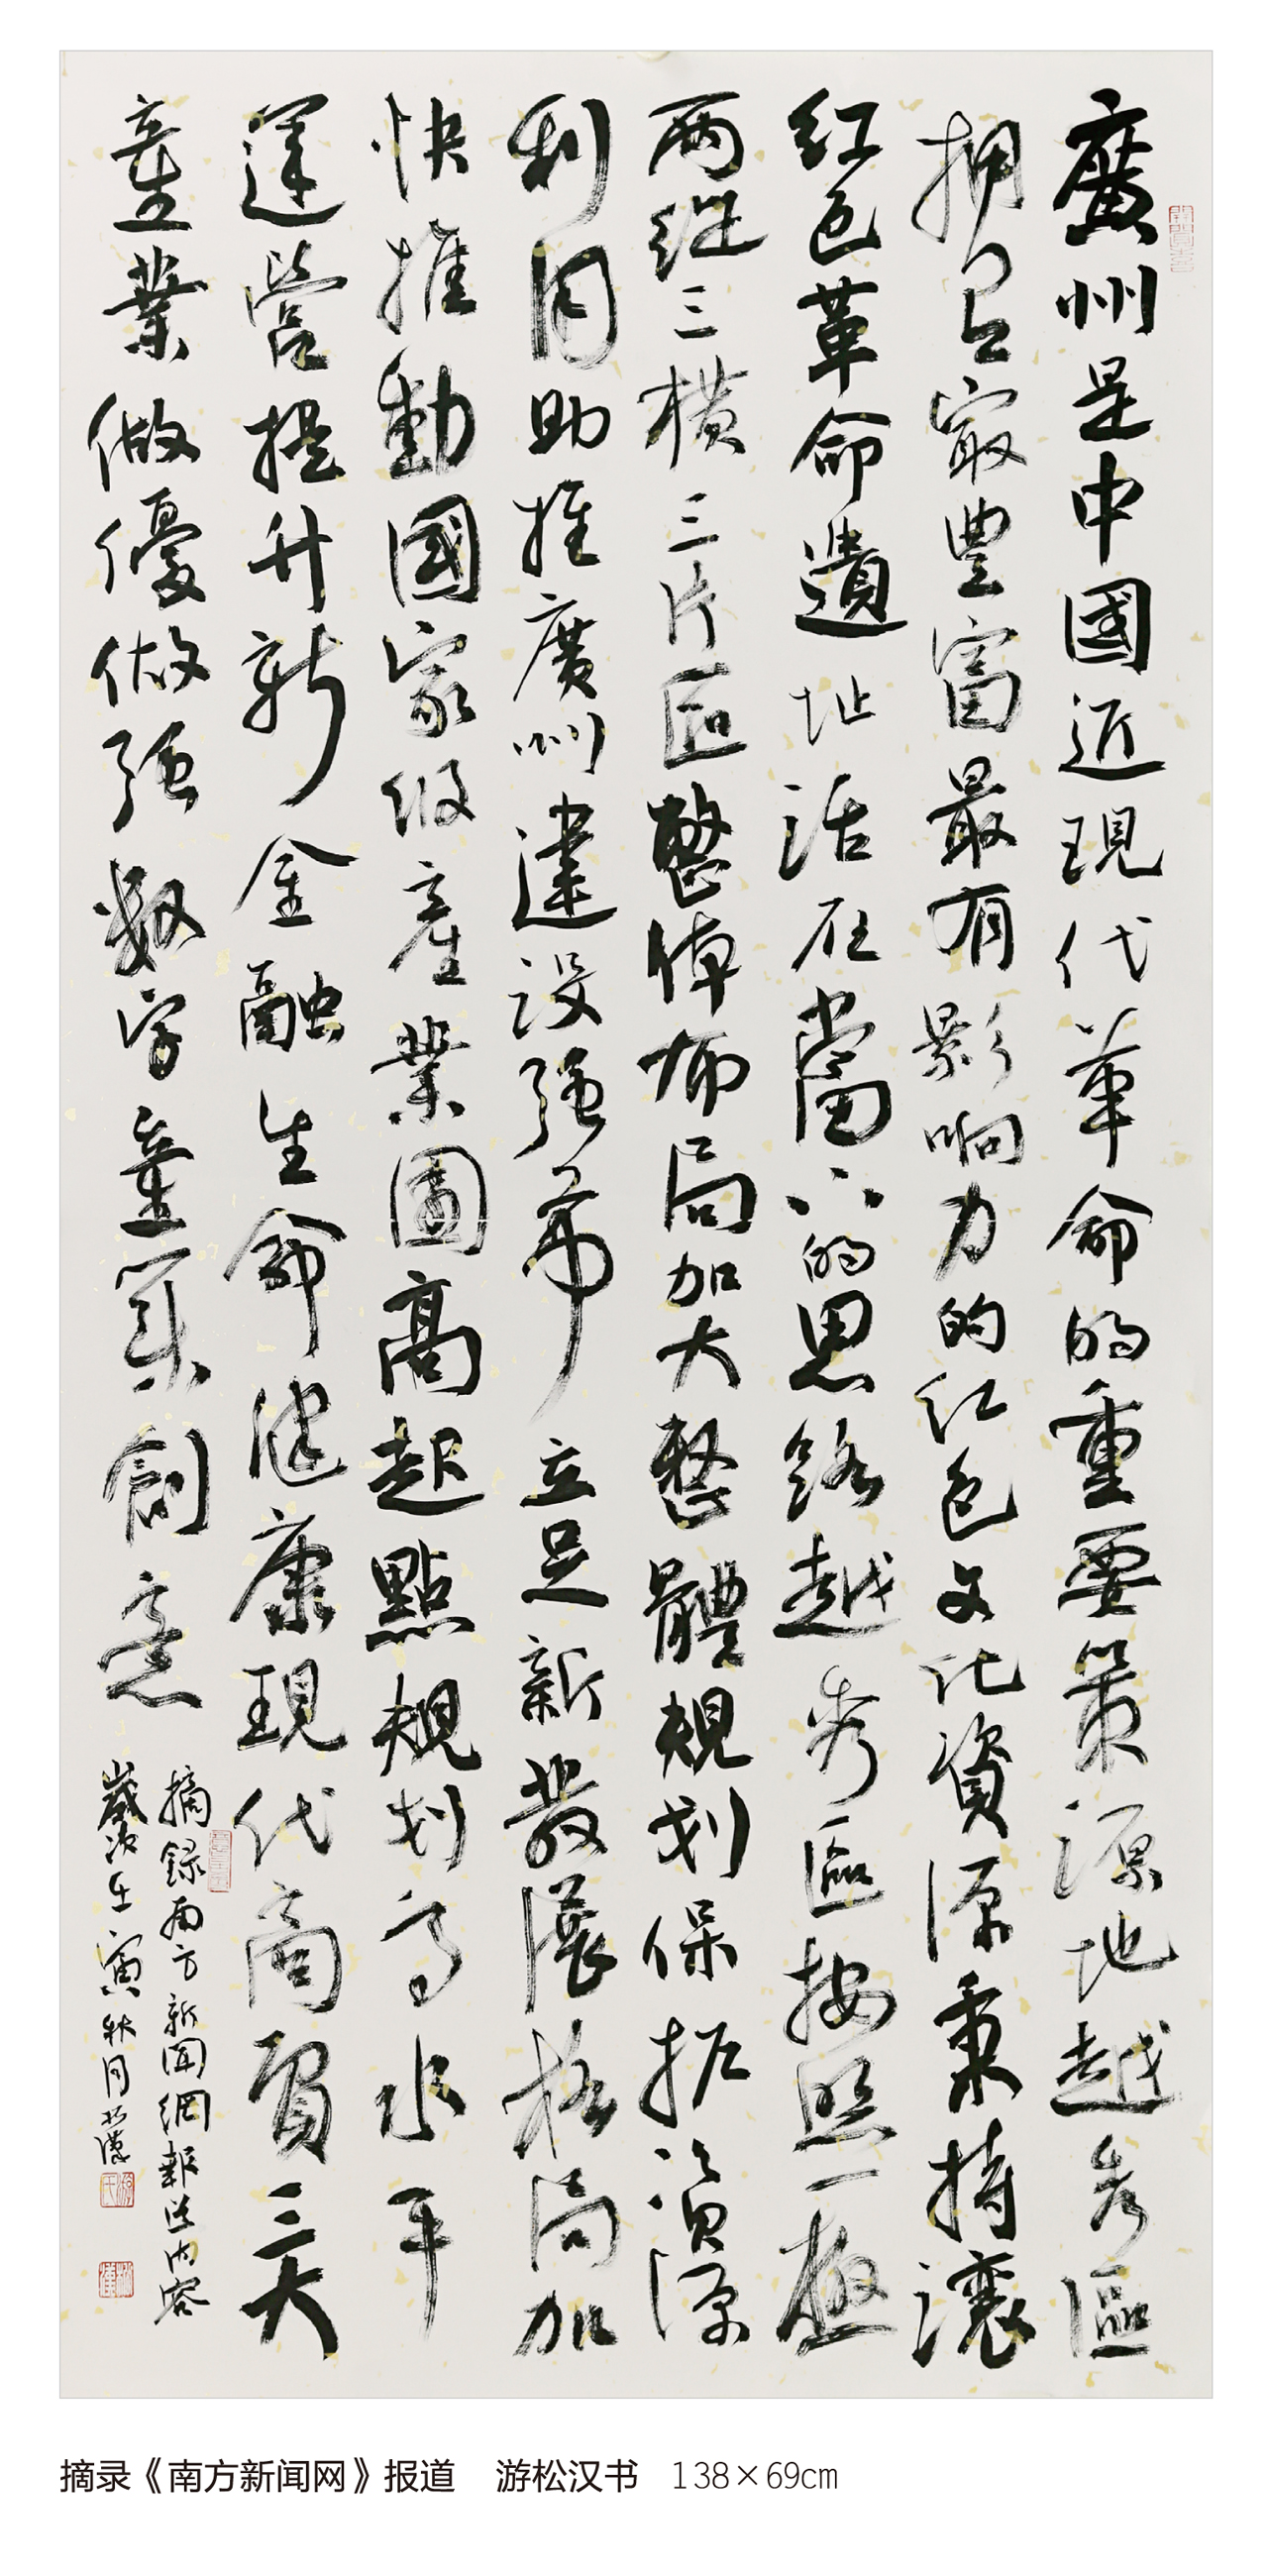 廣州是中國近現代革命的重要策源地越秀區
拥有最豊富最有影响力的红色文化資源秉持讓
红色革命遺址活在當下的思路越秀區按照一極
两纵三横三片區整体布局加大整體規划保护资源
利用助推廣州建设强市立足新發展格局加
快推動國家级產業園高起點規划高水平
運營提升新金融生命健康現代商贸三大
產業做優做强数字產業創意
摘録南方新聞網報道内容
歲次壬寅秋月松漢
摘录《南方新闻网》报道 游松汉书 138×69cm